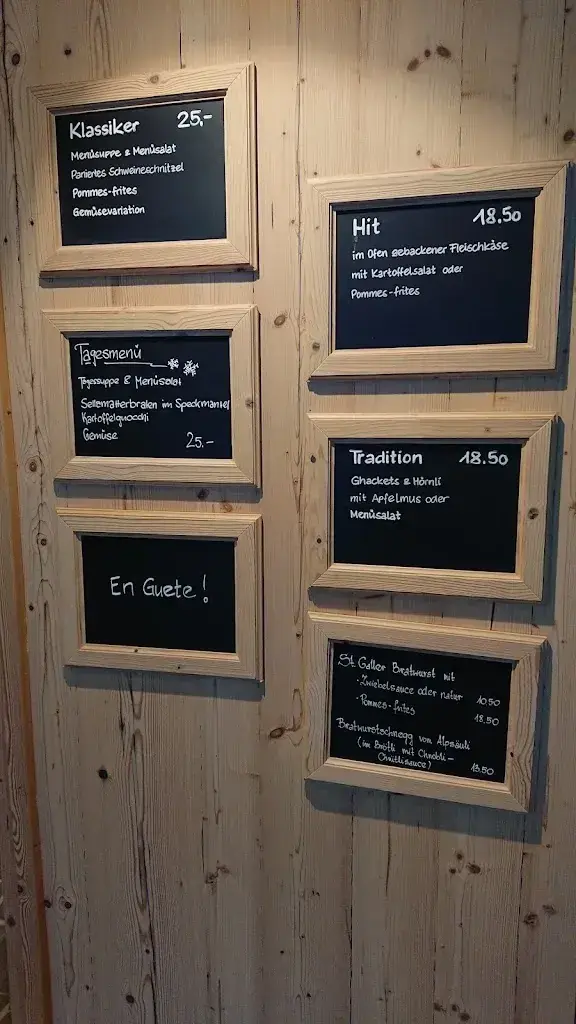 Klassiker 25,-
Menüsuppe & Menüsalat
Paniertes Schweineschnitzel
Pommes-frites
Gemüsevariation
Tagesmenü
Tagessuppe & Menüsalat
im Speckmantel
Kartoffelgnocchi
Gemüse
25.-
En Guete!
Hit 18.50
im Ofen gebackener Fleischkäse
mit Kartoffelsalat oder
Pommes-frites
Tradition 18.50
Ghackets & Hörnli
mit Apfelmus oder
Menüsalat
St. Galler Bratwurst mit
- Zwiebelsauce oder natur 10.50
- Pommes-frites 18.50
Bratwurstschnegg vom Alpsäuli
(im Brötli mit Chnobli-
13.50